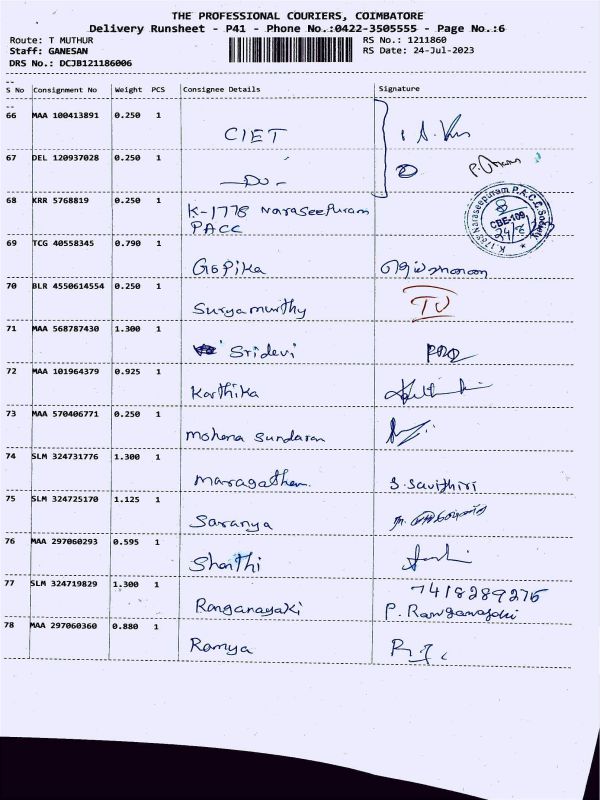 THE PROFESSIONAL COURIERS, COIMBATORE
Delivery Runsheet - P41 - Phone No.:0422-3505555 - Page No.:6
Route: T MUTHUR
RS No.: 1211860
Staff: GANESAN
RS Date: 24-Jul-2023
DRS No.: DCJB121186006
S No Consignment No Weight PCS Consignee Details Signature
66 MAA 100413891 0.250 1
CIET
67 DEL 120937028 0.250 1
- Do -
68 KRR 5768819 0.250 1
K-1778 Naraseepuram
PACC
69 TCG 40558345 0.790 1
Gopika
70 BLR 4550614554 0.250 1
Suryamurthy
71 MAA 568787430 1.300 1
Sridevi
72 MAA 101964379 0.925 1
Karthika
73 MAA 570406771 0.250 1
Mohana Sundaram
74 SLM 324731776 1.300 1
Maragatham S. Savithiri
75 SLM 324725170 1.125 1
Saranya
76 MAA 297060293 0.595 1
Shanthi
77 SLM 324719829 1.300 1
7418289275
Ranganayaki P. Ranganayaki
78 MAA 297060360 0.880 1
Ramya